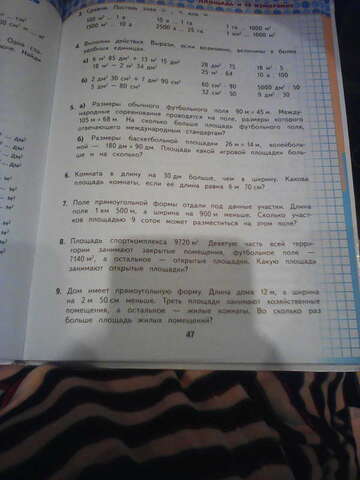 площадь и её измерение
100 м² ... 1 а
10 а ... 1 га
1 га ... 1000 м²
1500 м² ... 10 а
2500 а ... 25 га
1 км² ... 1000 м²
4. Выполни действия. Вырази, если возможно, величины в более
удобных единицах.
а) 6 м² 85 дм² + 13 м² 15 дм²
28 дм² · 75
18 м² · 5
25 м² · 64
10 а · 100
б) 2 дм² 30 см² + 7 дм² 90 см²
60 см² · 90
5000 дм² : 50
5 дм² — 80 см²
32 см² · 50
9 дм² : 30
5. а) Размеры обычного футбольного поля 90 м × 45 м. Между-
народные соревнования проводятся на поле, размеры которого
105 м × 68 м. На сколько больше площадь футбольного поля,
отвечающего международным стандартам?
б) Размеры баскетбольной площадки 26 м × 14 м, волейболь-
ной — 180 дм × 90 дм. Площадь какой игровой площадки боль-
ше и на сколько?
6. Комната в длину на 30 дм больше, чем в ширину. Какова
площадь комнаты, если её длина равна 6 м 70 см?
7. Поле прямоугольной формы отдали под дачные участки. Длина
поля 1 км 500 м, а ширина на 900 м меньше. Сколько участ-
ков площадью 9 соток может разместиться на этом поле?
8. Площадь спорткомплекса 9720 м². Девятую часть всей терри-
тории занимают закрытые помещения, футбольное поле —
7140 м², а остальное — открытые площадки. Какую площадь
занимают открытые площадки?
9. Дом имеет прямоугольную форму. Длина дома 12 м, а ширина
на 2 м 50 см меньше. Треть площади занимают хозяйственные
помещения, а остальное — жилые комнаты. Во сколько раз
больше площадь жилых помещений?
47